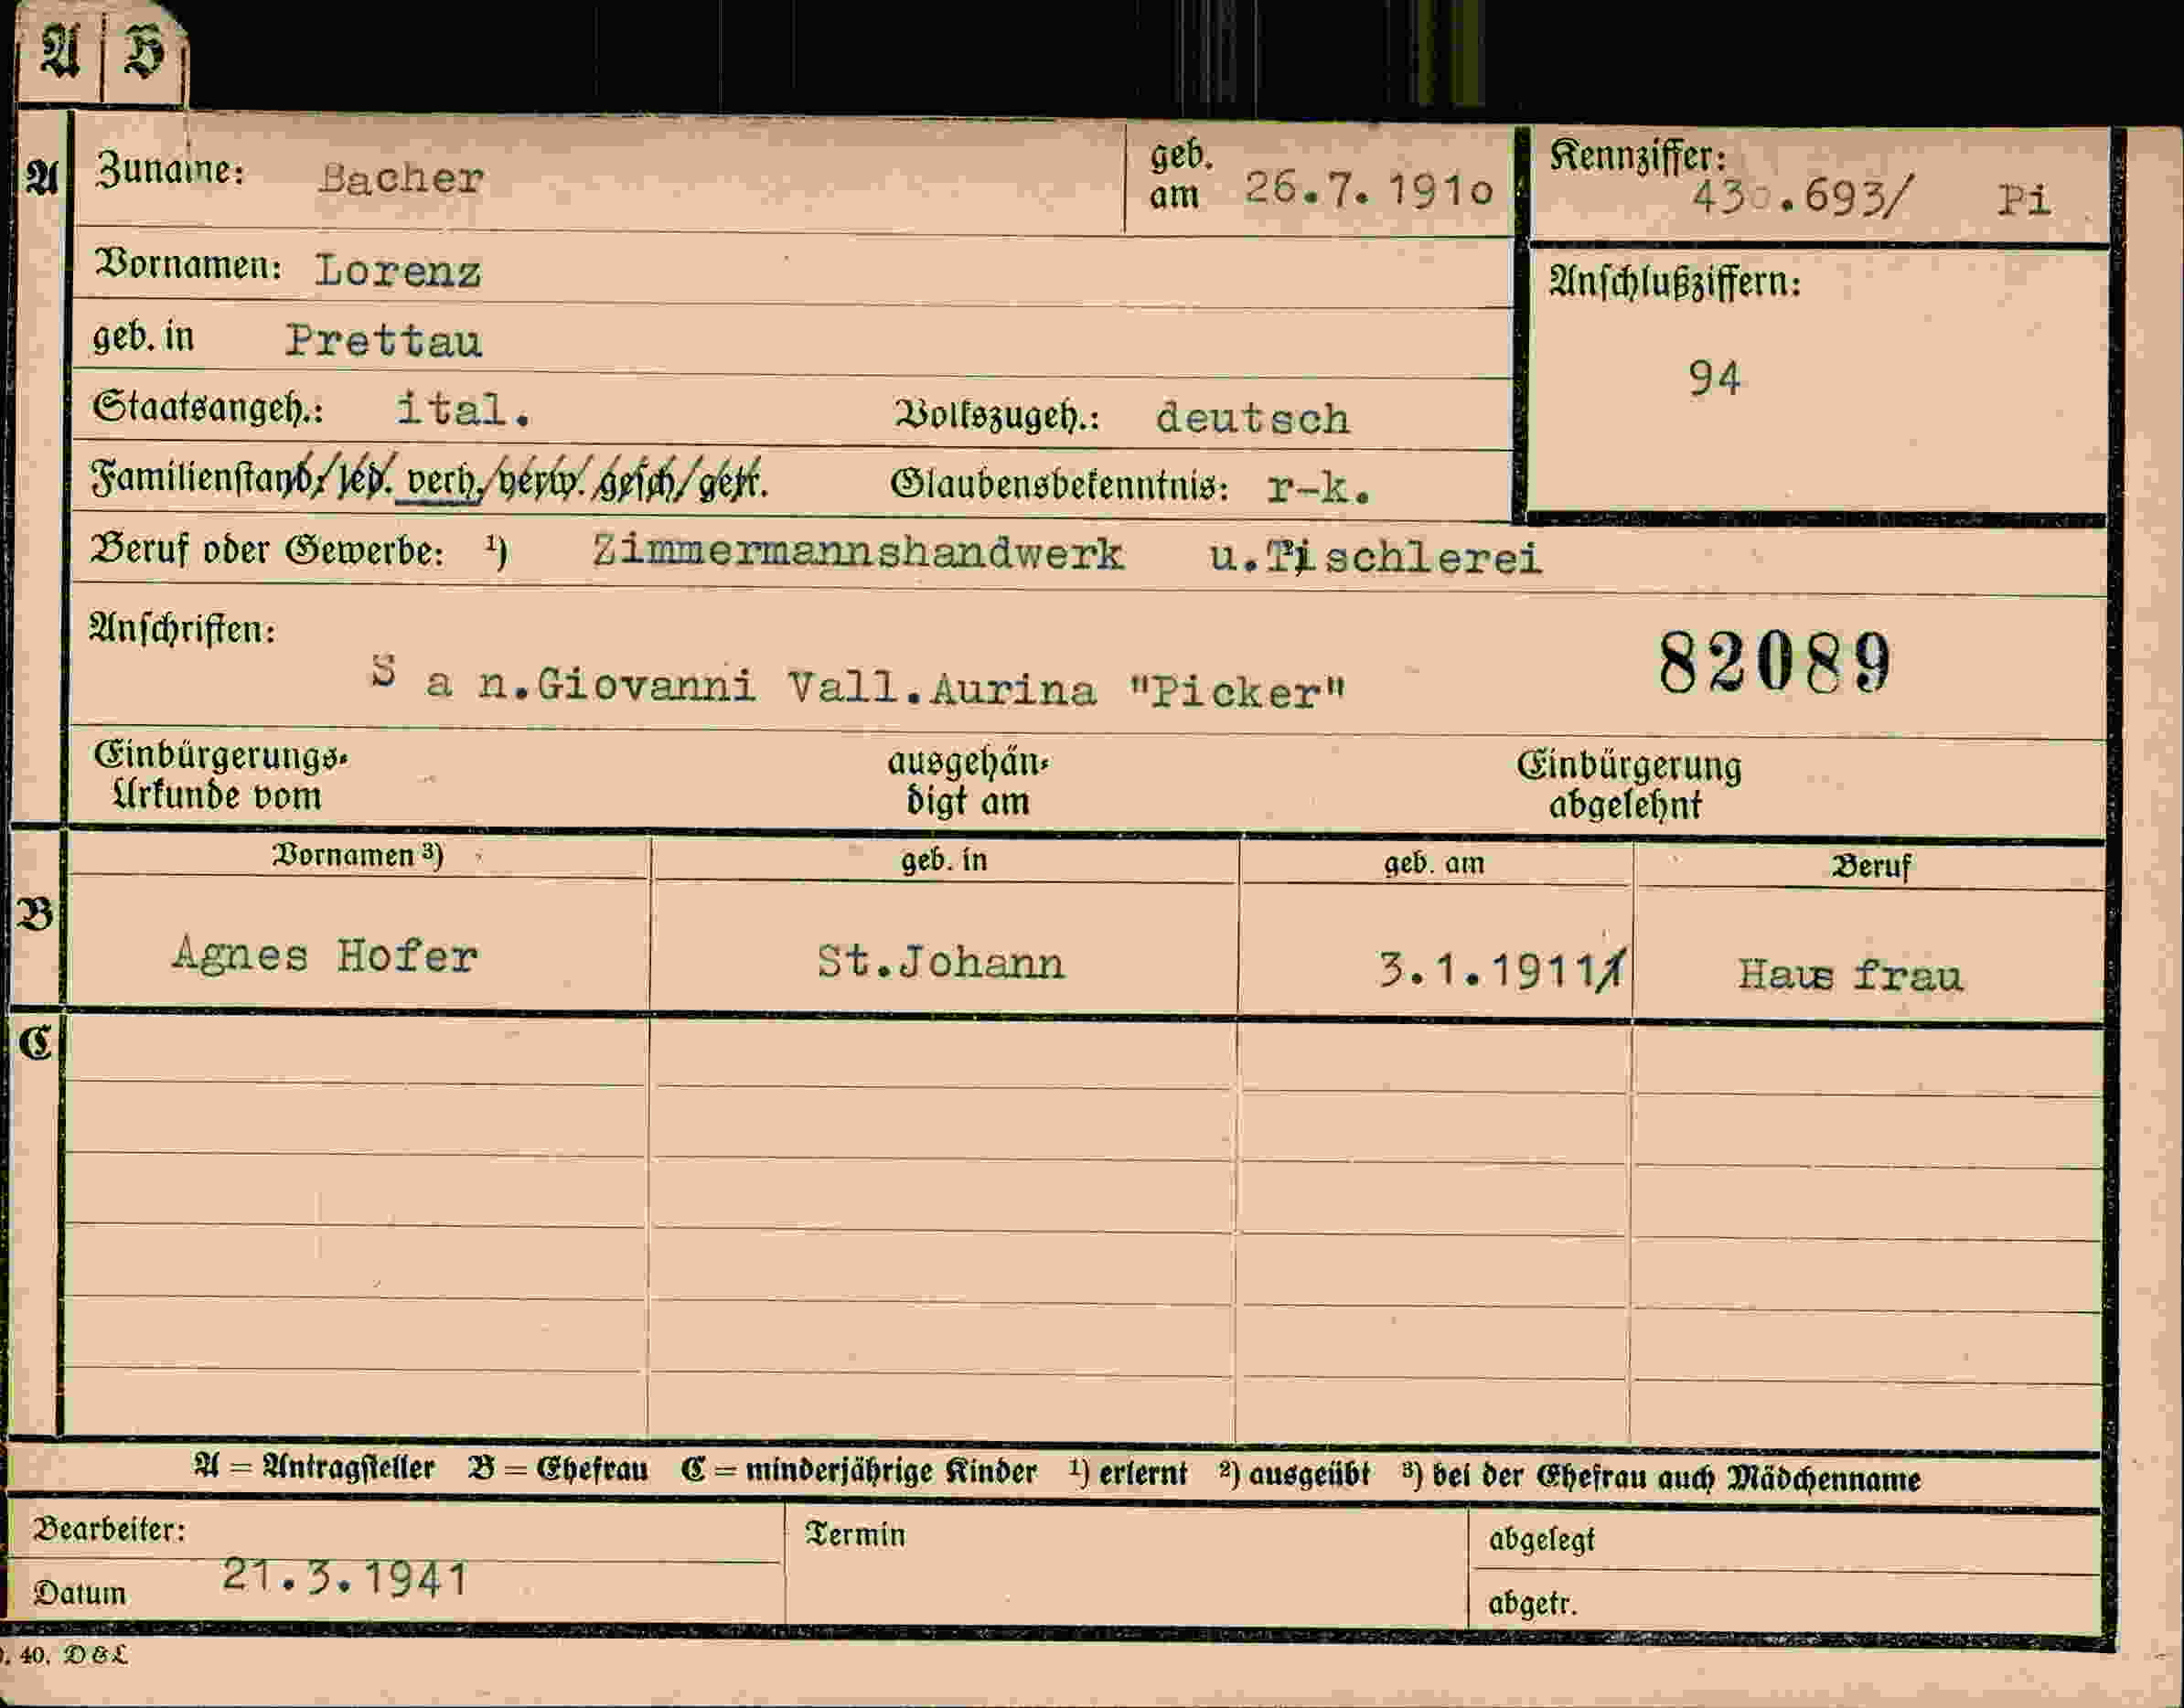 A B
A Zuname: Bacher geb. am 26.7.1910 Kennziffer: .693/ Pi
Vornamen: Lorenz
Anschlußziffern:
geb. in Prettau
94
Staatsangeh.: ital. Volkszugeh.: deutsch
Familienstand/led. verh./verw. gesch/getr. Glaubensbekenntnis: r-k.
Beruf oder Gewerbe: ¹) Zimmermannshandwerk u.Tischlerei
Anschriften: 82089
S a n.Giovanni Vall.Aurina "Picker"
Einbürgerungs- ausgehän- Einbürgerung
Urkunde vom digt am abgelehnt
Vornamen ³) geb. in geb. am Beruf
B Agnes Hofer St.Johann 3.1.1911 Haus frau
C
A = Antragsteller B = Ehefrau C = minderjährige Kinder ¹) erlernt ²) ausgeübt ³) bei der Ehefrau auch Mädchenname
Bearbeiter: Termin abgelegt
Datum 21.3.1941 abgetr.
40. D&L